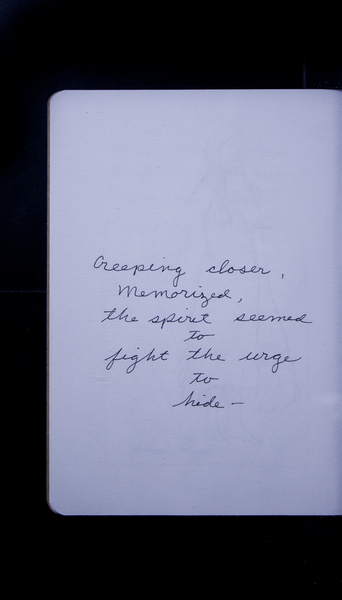 Creeping closer,
Memorized,
the spirit seemed
to
fight the urge
to
hide —